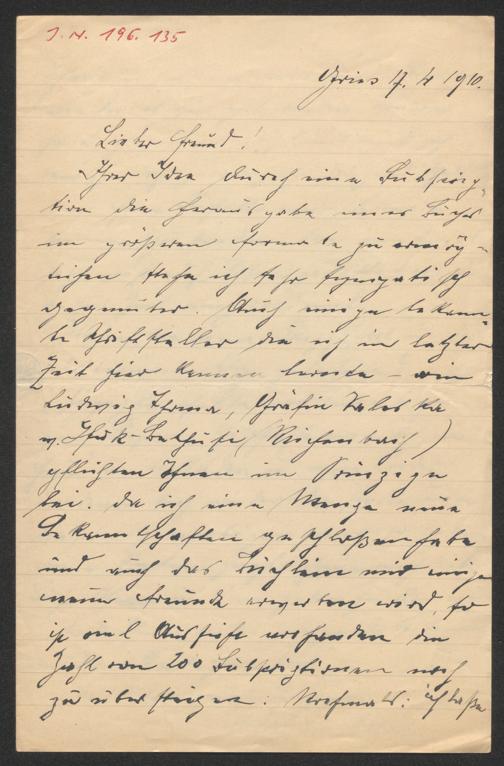 J. N. 196.135
Gries 17. 4 1910.
Lieber Freund!
Ihrer Idee durch eine Subskrip-
tion die Herausgabe eines Buches
im größeren Formate zu ermög-
lichen stehe ich sehr sympatisch
gegenüber. Auch einige bekann-
te Schriftsteller die ich in letzter
Zeit hier kennen lernte – wie
Ludwig Thoma, Gräfin Valeska
v. Bethusi (Reichenbach)
pflichten Ihnen im Prinzipe
bei. Da ich eine Menge neue
Bekanntschaften geschloßen habe
und auch das Büchlein mir einige
neue Freunde erwerben wird, so
ist viel Aussicht vorhanden die
Zahl von 200 Subskriptionen noch
zu übersteigen: Nochmals: ich laße